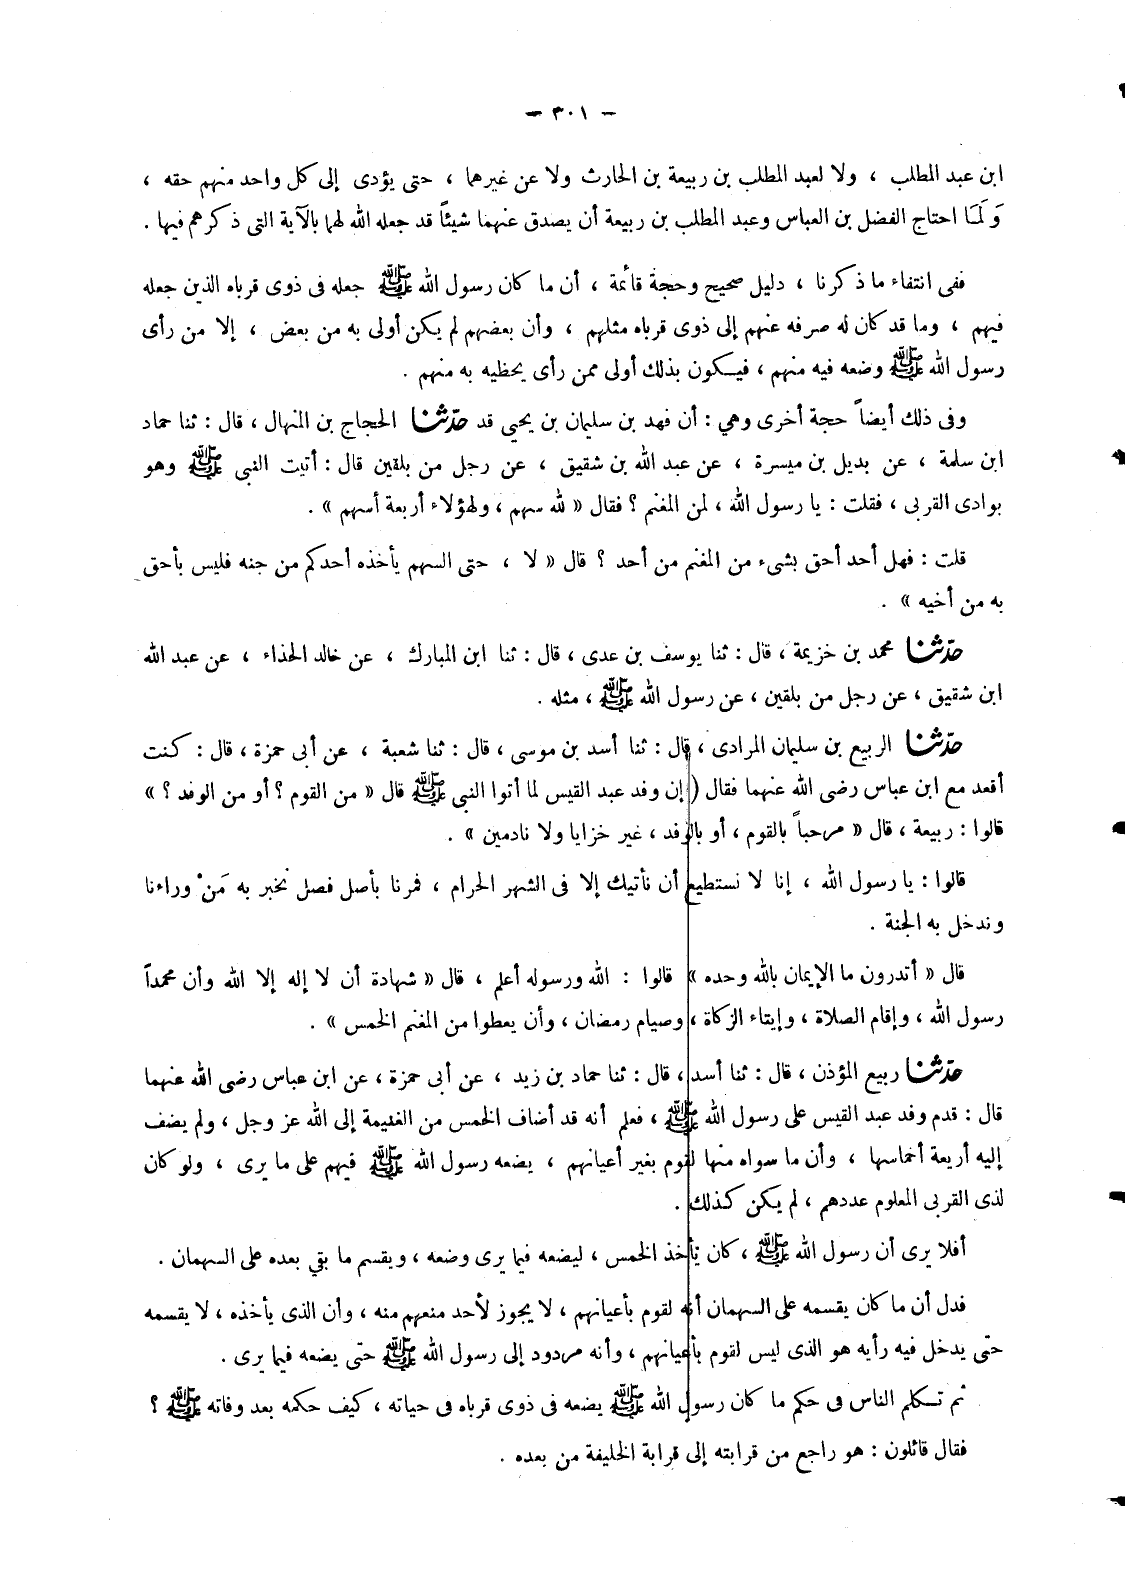 — ٣٠١ —
ابن عبد المطلب ، ولا لعبد المطلب بن ربيعة بن الحارث ولا عن غيرهما ، حتى يؤدى إلى كل واحد منهم حقه ،
وَلَمَا احتاج الفضل بن العباس وعبد المطلب بن ربيعة أن يصدق عنهما شيئاً قد جعله الله لهما بالآية التى ذكرهم فيها .
ففى انتفاء ما ذكرنا ، دليل صحيح وحجة قائمة ، أن ما كان رسول الله ﷺ جعله فى ذوى قرباه الذين جعله
فيهم ، وما قد كان له صرفه عنهم إلى ذوى قرباه مثلهم ، وأن بعضهم لم يكن أولى به من بعض ، إلا من رأى
رسول الله ﷺ وضعه فيه منهم ، فيكون بذلك أولى ممن رأى يحظيه به منهم .
وفى ذلك أيضاً حجة أخرى وهي : أن فهد بن سليمان بن يحيى قد حدّثنا الحجاج بن المنهال ، قال : ثنا حماد
ابن سلمة ، عن بديل بن ميسرة ، عن عبد الله بن شقيق ، عن رجل من بلقين قال : أتيت النبى ﷺ وهو
بوادى القربى ، فقلت : يا رسول الله ، لمن المغنم ؟ فقال « لله سهم ، ولهؤلاء أربعة أسهم » .
قلت : فهل أحد أحق بشىء من المغنم من أحد ؟ قال « لا ، حتى السهم يأخذه أحدكم من جنبه فليس بأحق
به من أخيه » .
حدّثنا محمد بن خزيمة ، قال : ثنا يوسف بن عدى ، قال : ثنا ابن المبارك ، عن خالد الحذاء ، عن عبد الله
ابن شقيق ، عن رجل من بلقين ، عن رسول الله ﷺ ، مثله .
حدّثنا الربيع بن سليمان المرادى ، قال : ثنا أسد بن موسى ، قال : ثنا شعبة ، عن أبى حمزة ، قال : كنت
أقعد مع ابن عباس رضى الله عنهما فقال ( إن وفد عبد القيس لما أتوا النبى ﷺ قال « من القوم ؟ أو من الوفد ؟ »
قالوا : ربيعة ، قال « مرحباً بالقوم ، أو بالوفد ، غير خزايا ولا نادمين » .
قالوا : يا رسول الله ، إنا لا نستطيع أن نأتيك إلا فى الشهر الحرام ، فمرنا بأصل فصل نخبر به مَنْ وراءنا
وندخل به الجنة .
قال « أتدرون ما الإيمان بالله وحده » قالوا : الله ورسوله أعلم ، قال « شهادة أن لا إله إلا الله وأن محمداً
رسول الله ، وإقام الصلاة ، وإيتاء الزكاة ، وصيام رمضان ، وأن يعطوا من المغنم الخمس » .
حدّثنا ربيع المؤذن ، قال : ثنا أسد ، قال : ثنا حماد بن زيد ، عن أبى حمزة ، عن ابن عباس رضى الله عنهما
قال : قدم وفد عبد القيس على رسول الله ﷺ ، فعلم أنه قد أضاف الخمس من الغنيمة إلى الله عز وجل ، ولم يضف
إليه أربعة أخماسها ، وأن ما سواه منها لقوم بغير أعيانهم ، يضعه رسول الله ﷺ فيهم على ما يرى ، ولو كان
لذى القربى المعلوم عددهم ، لم يكن كذلك .
أفلا يرى أن رسول الله ﷺ ، كان يأخذ الخمس ، ليضعه فيما يرى وضعه ، ويقسم ما بقي بعده على السهمان .
فدل أن ما كان يقسمه على السهمان أنه لقوم بأعيانهم ، لا يجوز لأحد منعهم منه ، وأن الذى يأخذه ، لا يقسمه
حتى يدخل فيه رأيه هو الذى ليس لقوم بأعيانهم ، وأنه مردود إلى رسول الله ﷺ حتى يضعه فيما يرى .
ثم تكلم الناس فى حكم ما كان رسول الله ﷺ يضعه فى ذوى قرباه فى حياته ، كيف حكمه بعد وفاته ﷺ ؟
فقال قائلون : هو راجع من قرابته إلى قرابة الخليفة من بعده .